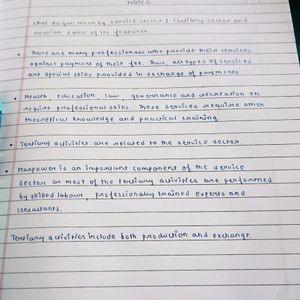 What do you mean by service sector / tertiary sector and
mention some of its features.
• There are many professionals who provide their services
against payment of their fee. Thus, all types of services
are special skills provided in exchange of payments
• Health education, law governance and recreation etc
require professional skills. These services require other
theoretical knowledge and practical training.
• Tertiary activities are related to the service sector.
• Manpower is an important component of the service
sector as most of the tertiary activities are performed
by skilled labour, professionally trained experts and
consultants.
Tertiary activities include both production and exchange.